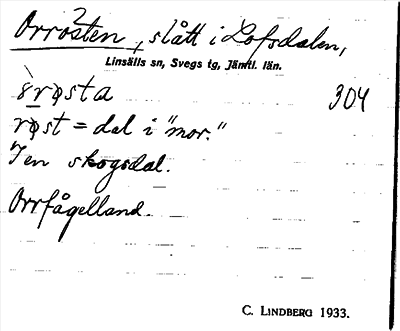 Orrosten, slått i Lofsdalen,
Linsälls sn, Svegs tg, Jämtl. län.
304
røst = dal i "mor."
I en skogsdal.
Orrfågelland.
C. LINDBERG 1933.